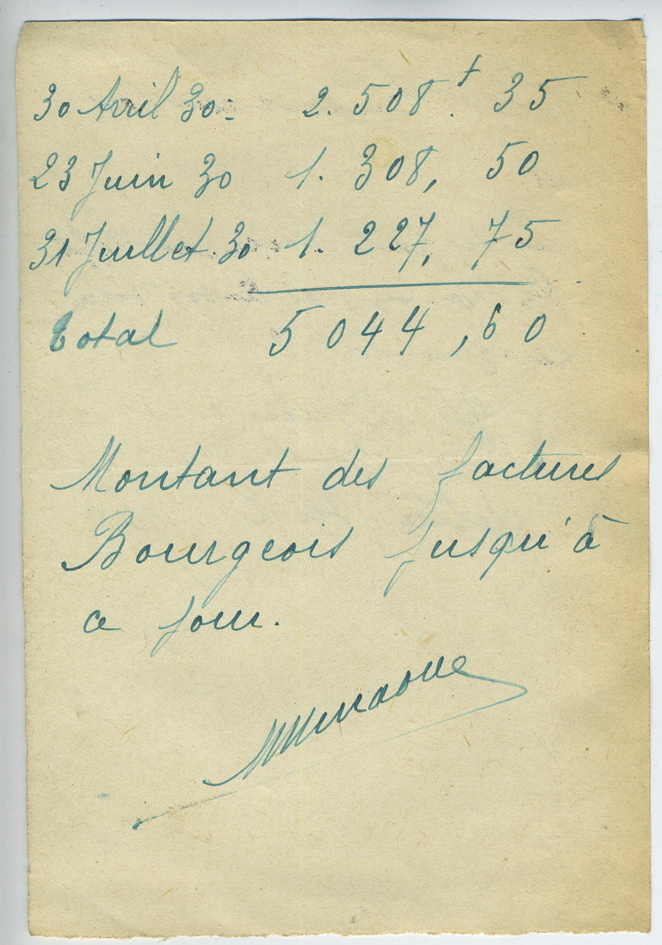 30 Avril 30: 2.508f. 35
23 Juin 30 1. 308, 50
31 Juillet.30 1. 227, 75
Total 5 044 , 60
Montant des factures
Bourgeois jusqu'à
ce jour.